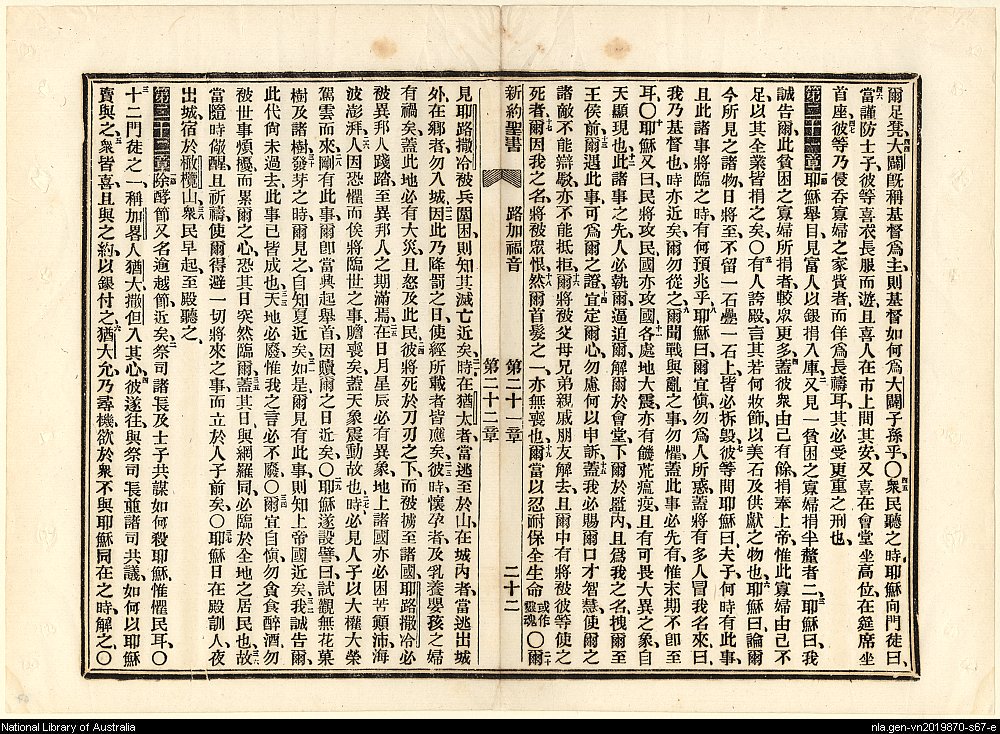 爾足凳、大闢旣稱基督爲主、則基督如何爲大闢子孫乎、〇衆民聽之時耶穌向門徒曰、
當謹防士子、彼等喜衣長服而遊、且喜人在市上問其安、又喜在會堂坐高位、在筵席坐
首座、彼等乃侵吞寡婦之家貲者、而佯爲長禱耳、其必受更重之刑也、
第二十一章 耶穌舉目、見富人以銀捐入庫、又見一貧困之寡婦捐半釐者二、耶穌曰、我
誠告爾、此貧困之寡婦所捐者、較衆更多、蓋彼衆由己有餘捐奉上帝、惟此寡婦由己不
足、以其全業皆捐之矣、〇有人誇殿、言其若何妝飾、以美石及供獻之物也、耶穌曰、論爾
今所見之諸物、日將至不留一石壘一石上、皆必拆毀、彼等問耶穌曰、夫子、何時有此事、
且此諸事將臨之時、有何預兆乎、耶穌曰、爾宜愼、勿爲人所惑、蓋將有多人冒我名來、曰、
我乃基督也、時亦近矣、爾勿從之、爾聞戰與亂之事勿懼、蓋此事必先有、惟末期不卽至
耳、〇耶穌又曰、民將攻民、國亦攻國、各處地大震、亦有饑荒瘟疫、且有可畏大異之象、自
天顯現也、此諸事之先、人必執爾逼迫爾、解爾於會堂、下爾於監內、且爲我之名、拽爾至
王侯前、爾遇此事可爲爾之證、宜定爾心、勿慮何以申訴、蓋我必賜爾口才智慧、使爾之
諸敵不能辯駁、亦不能抵拒、爾將被父母兄弟親戚朋友解去、且爾中有將被彼等使之
死者、爾因我之名、將被眾恨、然爾首髮之一、亦無喪也、爾當以忍耐保全生命或作靈魂〇爾
新約聖書 路加福音 第二十一章 第二十二章 二十二
見耶路撒冷被兵圍困、則知其滅亡近矣、時在猶太者、當逃至於山、在城內者、當逃出城
外、在鄉者勿入城、因此乃降罰之日、使經所載者皆應矣、彼時懷孕者及乳養嬰孩之婦
有禍矣、蓋此地必有大災、且怒及此民、彼將死於刀刃之下、而被擄至諸國、耶路撒冷必
被異邦人踐踏、至異邦人之期滿焉、在日月星辰必有異象、地上諸國亦必困苦顛沛、海
波澎湃、人因恐懼而俟將臨世之事、膽喪矣、蓋天象震動故也、時必見人子以大權大榮
駕雲而來、剛有此事、爾卽當興起舉首、因贖爾之日近矣、〇耶穌遂設譬曰、試觀無花菓
樹及諸樹發芽之時、爾見之、自知夏近矣、如是爾見有此事、則知上帝國近矣、我誠告爾、
此代尚未過去、此事已皆成也、天地必廢、惟我之言必不廢、〇爾宜自愼、勿貪食醉酒、勿
被世事煩擾、而累爾之心、恐其日突然臨爾、蓋其日與網羅同、必臨於全地之居民也、故
當隨時儆醒且祈禱、使爾得避一切將來之事、而立於人子前矣、〇耶穌日在殿訓人、夜
出城宿於橄欖山、衆民早起至殿聽之、
第二十二章 除酵節又名逾越節近矣、祭司諸長及士子共謀如何殺耶穌、惟懼民耳、〇
十二門徒之一、稱加畧人猶大、撒但入其心、彼遂往與祭司長並諸司共議、如何以耶穌
賣與之、衆皆喜、且與之約、以銀付之、猶大允、乃尋機欲於衆不與耶穌同在之時、解之、〇
National Library of Australia
nla.gen-vn2019870-s67-e